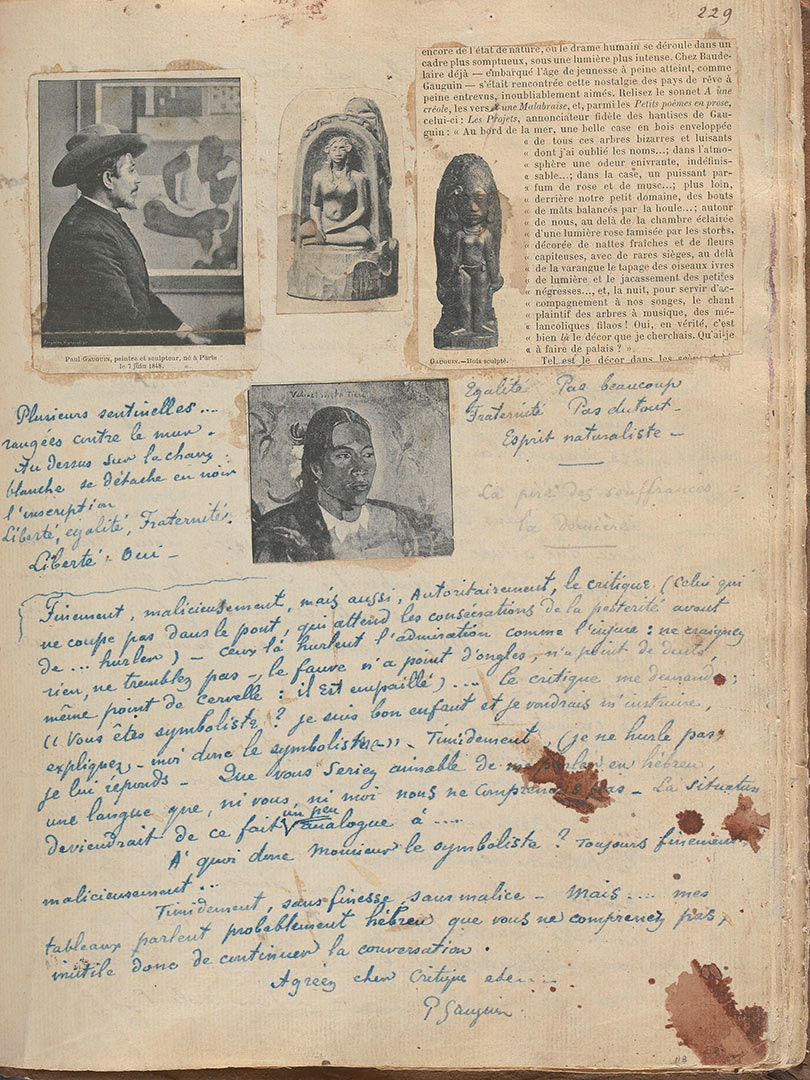 229
encore de l'état de nature, où le drame humain se déroule dans un
cadre plus somptueux, sous une lumière plus intense. Chez Baude-
laire déjà — embarqué l'âge de jeunesse à peine atteint, comme
Gauguin — s'était rencontrée cette nostalgie des pays de rêve à
peine entrevus, inoubliablement aimés. Relisez le sonnet A une
créole, les vers à une Malabraise, et, parmi les Petits poèmes en prose,
celui-ci : Les Projets, annonciateur fidèle des hantises de Gau-
guin : « Au bord de la mer, une belle case en bois enveloppée
« de tous ces arbres bizarres et luisants
« dont j'ai oublié les noms...; dans l'atmo-
« sphère une odeur enivrante, indéfinis-
« sable...; dans la case, un puissant par-
« fum de rose et de musc...; plus loin,
« derrière notre petit domaine, des bouts
« de mâts balancés par la houle...; autour
« de nous, au delà de la chambre éclairée
« d'une lumière rose tamisée par les stores,
« décorée de nattes fraîches et de fleurs
« capiteuses, avec de rares sièges, au delà
« de la varangue le tapage des oiseaux ivres
« de lumière et le jacassement des petites
« négresses..., et, la nuit, pour servir d'ac-
« compagnement à nos songes, le chant
« plaintif des arbres à musique, des mé-
« lancoliques filaos ! Oui, en vérité, c'est
« bien là le décor que je cherchais. Qu'ai-je
« à faire de palais ? »
Tel est le décor dans les
Paul Gauguin, peintre et sculpteur, né à Paris
le 7 juin 1848.
Gauguin. — Bois sculpté.
Plusieurs sentinelles ....
rangées contre le mur.
Au dessus sur la chaux
blanche se détache en noir
l'inscription
Liberté, égalité, Fraternité.
Liberté : Oui —
Egalité Pas beaucoup
Fraternité Pas du tout —
Esprit naturaliste —
La pire des souffrances
la dernière
Finement, malicieusement, mais aussi, Autoritairement, le critique (Celui qui
ne coupe pas dans le pont, qui attend les consécrations de la postérité avant
de ... hurler) — ceux là hurlent l'admiration comme l'injure : ne craignez
rien, ne tremblez pas —, le fauve n'a point d'ongles, n'a point de dents,
même point de cervelle : il est empaillé) .... Le critique me demande :
(( Vous êtes symboliste ? je suis bon enfant et je voudrais m'instruire,
expliquez-moi donc le symboliste )) — Timidement, (je ne hurle pas)
je lui réponds — Que vous seriez aimable de me parler en hébreu,
une langue que, ni vous, ni moi nous ne comprenons pas — La situation
deviendrait de ce fait un peu analogue à .....
A' quoi donc Monsieur le symboliste ? Toujours finement
malicieusement ...
Timidement, sans finesse, sans malice — Mais .... mes
tableaux parlent probablement hébreu que vous ne comprenez pas,
inutile donc de continuer la conversation.
Agréez cher Critique etc....
P Gauguin.